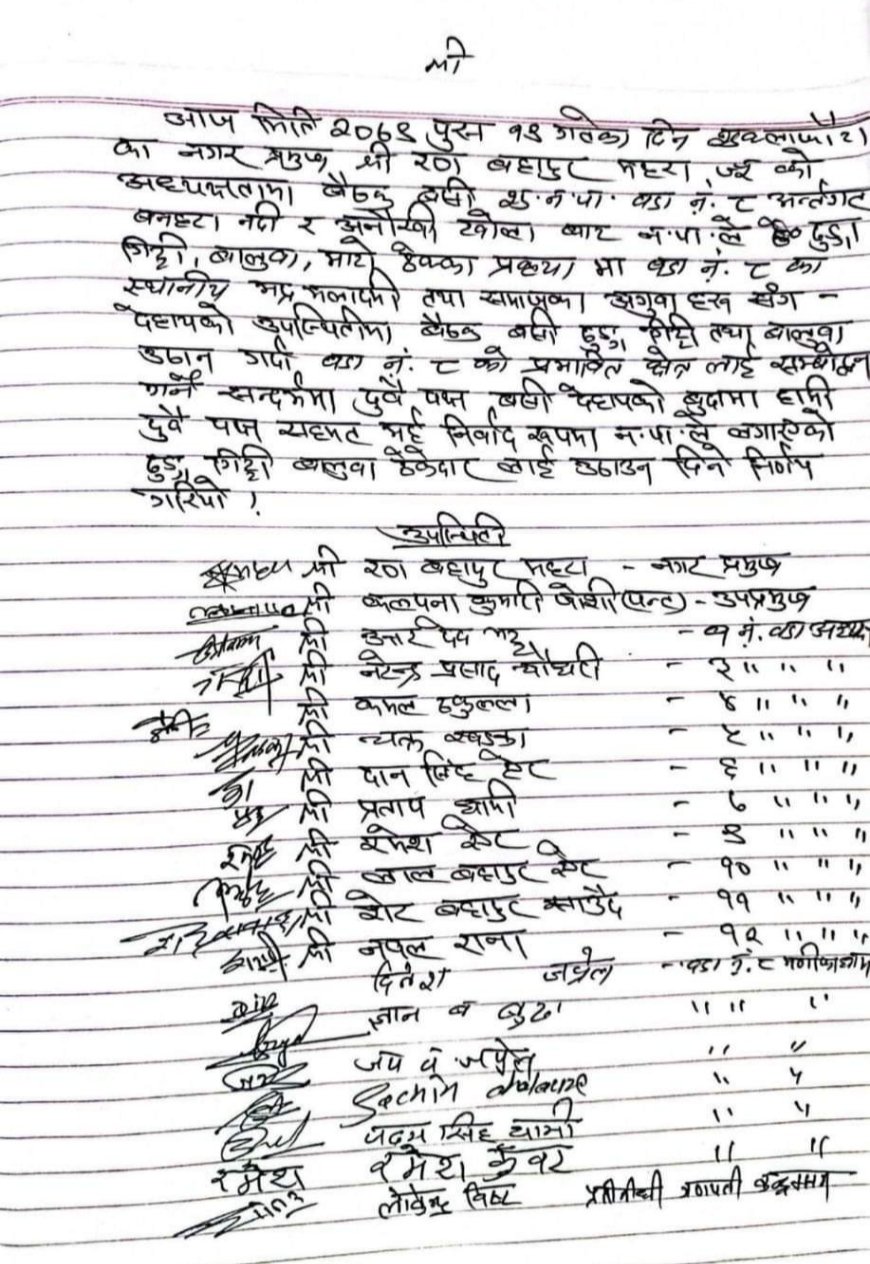 श्री
आज मिति २०७९ पुस १९ गतेका दिन शुक्लाफाँटा
का नगर प्रमुख श्री रण बहादुर महरा ज्यू को
अध्यक्षतामा बैठक बसी शु.न.पा. वडा नं. ८ अर्न्तगट
बनहरा नदी र खोला बाट न.पा.ले ढुङ्गा
गिट्टी, बालुवा, माटो ठेक्का प्रकृया मा वडा नं. ८ का
स्थानीय भद्र भलादमी तथा समाजका अगुवा हरु संग -
देहायको उपस्थितीमा बैठक बसी ढुङ्गा गिट्टी तथा बालुवा
उठान गर्दा वडा नं. ८ को प्रभावित क्षेत्र लाई सम्बोधन
गर्ने सन्दर्भमा दुवै पक्ष बसी देहायको बुदामा हामी
दुवै पक्ष सहमट भई निर्वाद रुपमा न.पा.ले लगाएको
ढुङ्गा गिट्टी बालुवा ठेकेदार लाई उठाउन दिने निर्णय
गरियो ।
उपस्थिती
श्री रण बहादुर महरा - नगर प्रमुख
श्री कल्पना कुमारी जोशी (पन्ट) - उपप्रमुख
श्री देव भट्ट - १ नं. वडा अध्यक्ष
श्री नरेन्द्र प्रसाद चौधरी - ३ " " "
श्री कमल - ४ " " "
श्री खड्का - ५ " " "
श्री दान सिंह - ६ " " "
श्री प्रताप धामी - ७ " " "
श्री रमेश - ९ " " "
श्री लाल बहादुर - १० " " "
श्री शेर बहादुर साउँद - ११ " " "
श्री नवल राना - १२ " " "
दिनेश जप्रेल - वडा नं. ८
ज्ञान ब बुढा " " "
जय ब जप्रेल " "
Sachin " "
पदम सिंह धामी " "
रमेश रमेश कुँवर " "
लोकेन्द्र विष्ट